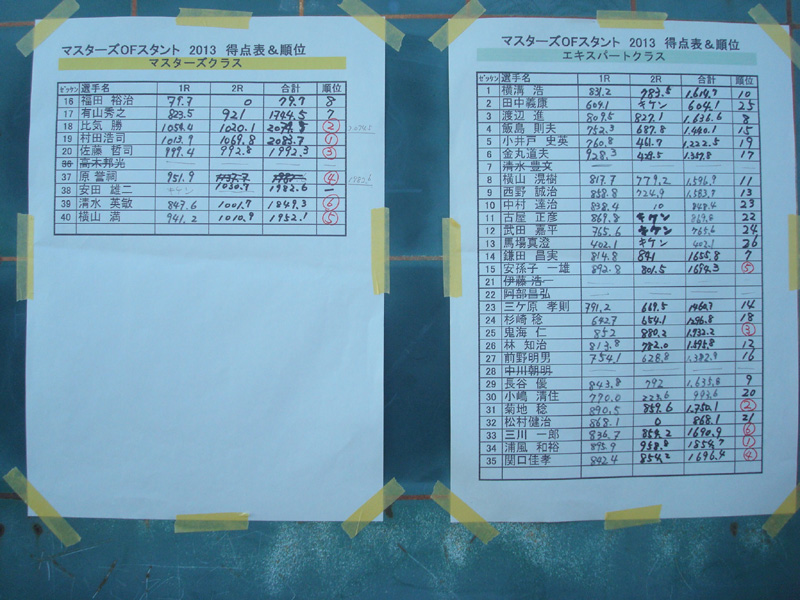 マスターズOFスタント 2013 得点表＆順位
マスターズクラス
ゼッケン 選手名 1R 2R 合計 順位
16 福田 裕治 79.7 0 79.7 8
17 有山秀之 823.5 921 1744.5 7
18 比気 勝 1054.4 1020.1 2074.5 ②
19 村田浩司 1013.9 1069.8 2083.7 ①
20 佐藤 哲司 999.4 992.8 1992.3 ③
36 高木邦光
37 原 誉祠 951.9 ④
38 安田 雄二 キケン 1030.7 1982.6
39 清水 英敏 847.6 1001.7 1849.3 ⑥
40 横山 満 941.2 1010.9 1952.1 ⑤
マスターズOFスタント 2013 得点表＆順位
エキスパートクラス
ゼッケン 選手名 1R 2R 合計 順位
1 横溝 浩 831.2 783.5 1,614.7 10
2 田中義康 604.1 キケン 604.1 25
3 渡辺 進 809.5 827.1 1,636.6 8
4 飯島 則夫 752.3 687.8 1,440.1 15
5 小井戸 史英 760.8 461.7 1,222.5 19
6 金丸道夫 928.3 17
7 清水 豊文
8 横山 滉樹 817.7 779.2 1,596.9 11
9 西野 誠治 858.8 724.9 1,583.7 13
10 中村 達治 838.4 10 848.4 23
11 古屋 正彦 869.8 キケン 869.8 22
12 武田 嘉平 765.6 キケン 765.6 24
13 馬場真澄 402.1 キケン 402.1 26
14 鎌田 昌実 814.8 841 1655.8 7
15 安孫子 一雄 892.8 801.5 1694.3 ⑤
21 伊藤 浩一
22 阿部昌弘
23 三ケ原 孝則 791.2 669.5 1460.7 14
24 杉崎 稔 642.7 654.1 1,296.8 18
25 鬼海 仁 852 880.2 1,732.2 ③
26 林 知治 813.8 782.0 1,595.8 12
27 前野明男 754.1 628.8 1,382.9 16
28 中川朝明
29 長谷 優 843.8 792 1,635.8 9
30 小嶋 清住 770.0 223.6 993.6 20
31 菊地 稔 890.5 859.6 1,750.1 ②
32 松村健治 868.1 0 868.1 21
33 三川 一郎 836.7 854.2 1690.9 ⑥
34 浦風 和裕 895.9 958.8 1854.7 ①
35 関口佳孝 842.4 854.2 1696.4 ④